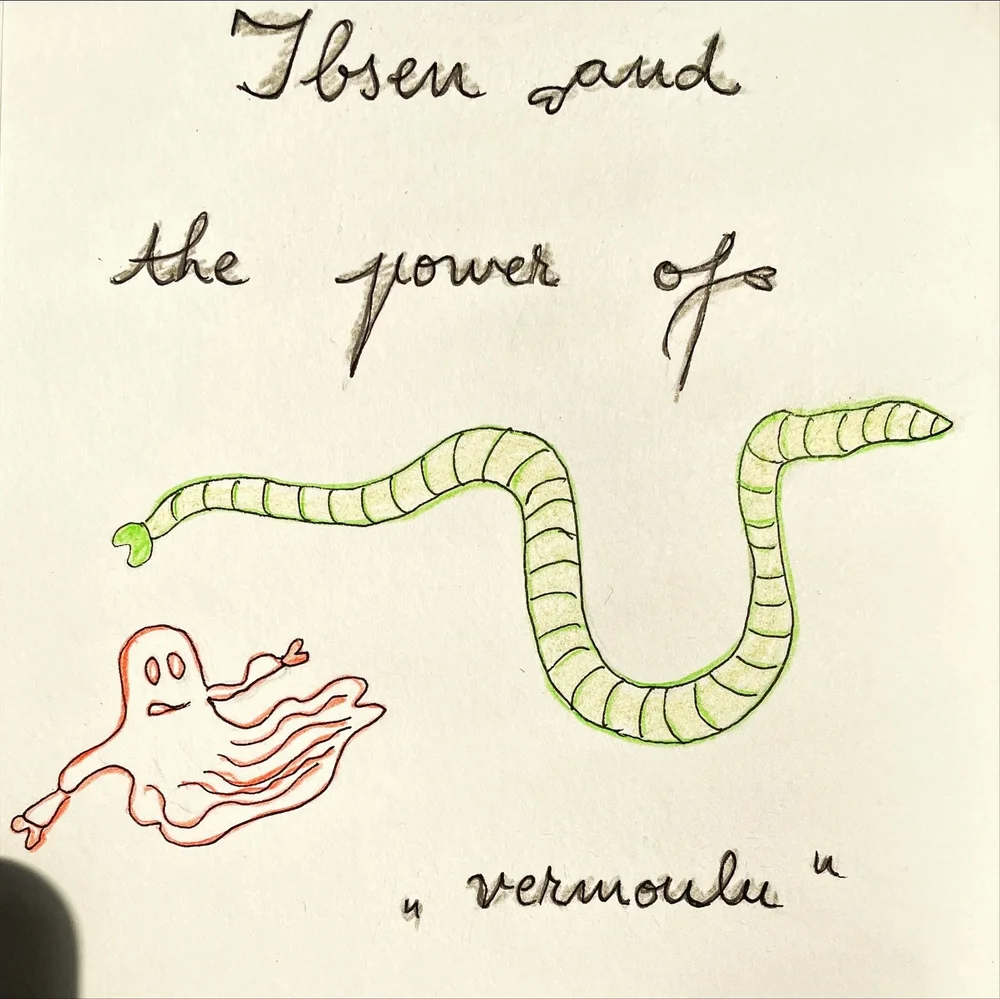 Ibsen and
the power of
„vermoulu“